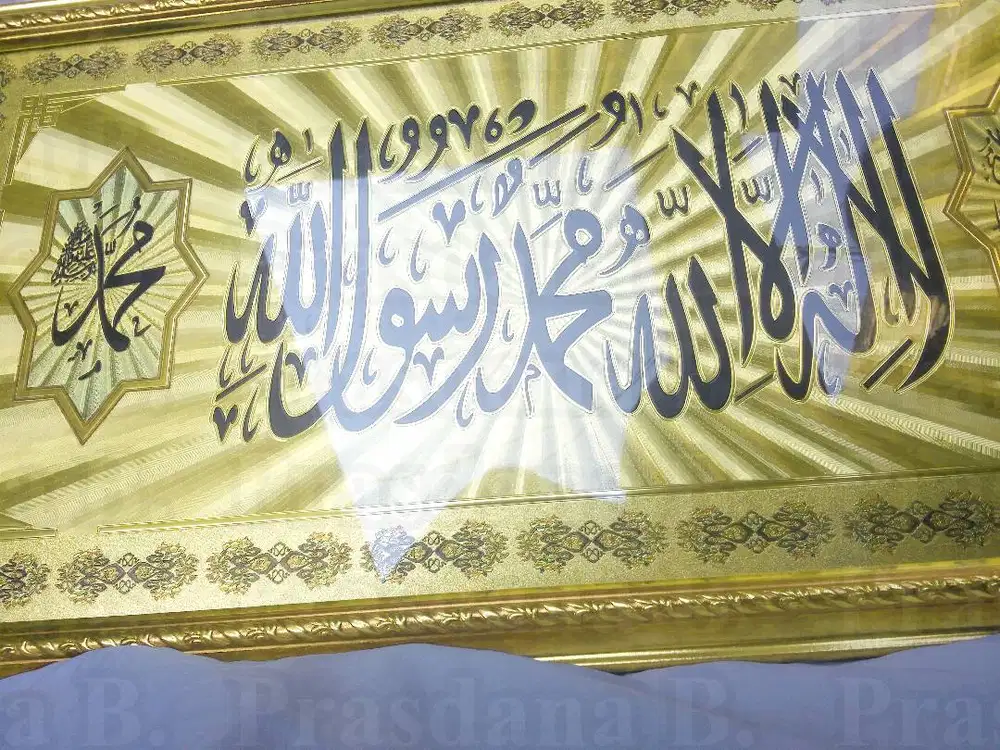 لا إله إلا الله محمد رسول الله
محمد
Prasdana B.